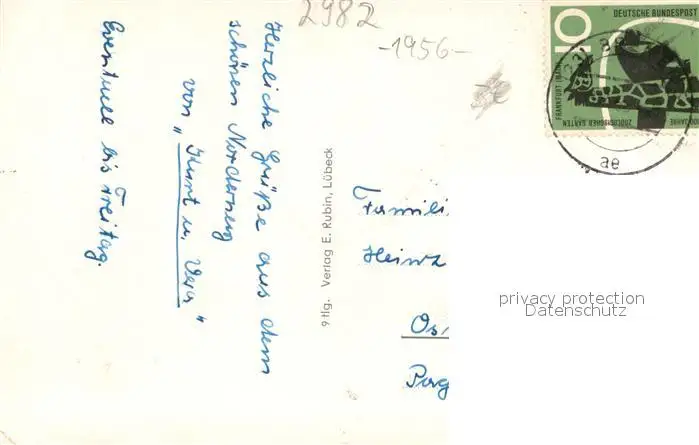 2982
-1956-
Herzliche Grüße aus dem
schönen Norderney
von „Kurt u. Vera"
Eventuell bis Freitag.
9 flg. Verlag E. Rubin, Lübeck
Famili
Heinz
Os
Pag
10
DEUTSCHE BUNDESPOST
FRANKFURT (MAIN)
100 JAHRE
ZOOLOGISCHER GARTEN
ae
privacy protection
Datenschutz